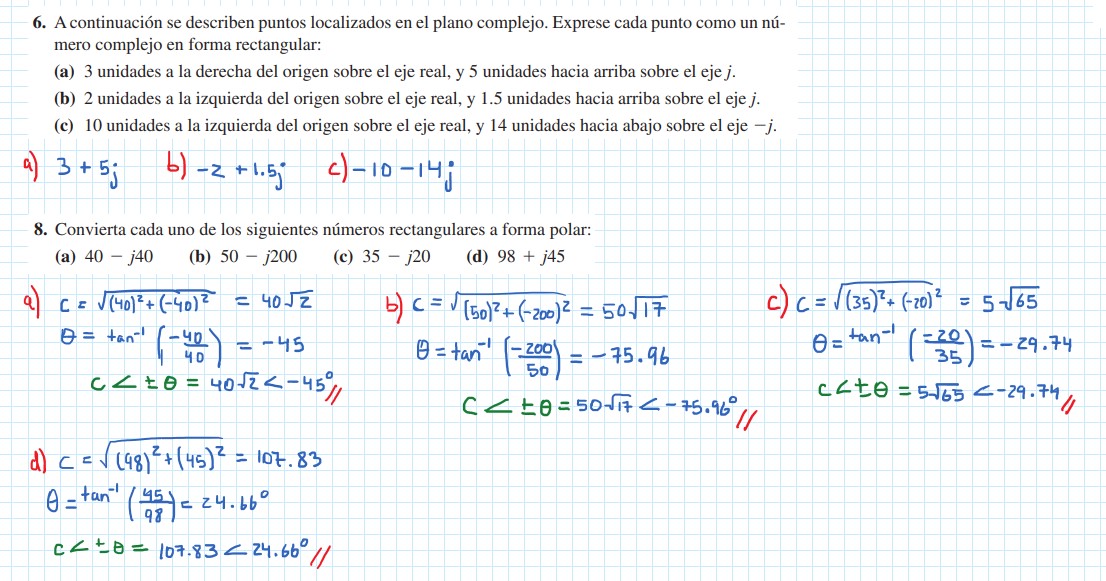 6. A continuación se describen puntos localizados en el plano complejo. Exprese cada punto como un nú-
mero complejo en forma rectangular:
(a) 3 unidades a la derecha del origen sobre el eje real, y 5 unidades hacia arriba sobre el eje j.
(b) 2 unidades a la izquierda del origen sobre el eje real, y 1.5 unidades hacia arriba sobre el eje j.
(c) 10 unidades a la izquierda del origen sobre el eje real, y 14 unidades hacia abajo sobre el eje −j.
a) 3 + 5j b) -2 + 1.5j c) -10 -14j
8. Convierta cada uno de los siguientes números rectangulares a forma polar:
(a) 40 − j40 (b) 50 − j200 (c) 35 − j20 (d) 98 + j45
a) C = √(40)² + (-40)² = 40√2
θ = tan⁻¹ (-40/40) = -45
C < ± θ = 40√2 < -45° //
b) C = √(50)² + (-200)² = 50√17
θ = tan⁻¹ (-200/50) = -75.96
C < ± θ = 50√17 < -75.96° //
c) C = √(35)² + (-20)² = 5√65
θ = tan⁻¹ (-20/35) = -29.74
C < ± θ = 5√65 < -29.74 //
d) C = √(98)² + (45)² = 107.83
θ = tan⁻¹ (45/98) = 24.66°
C < ± θ = 107.83 < 24.66° //